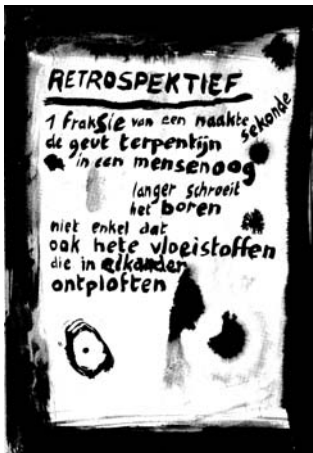 RETROSPEKTIEF
1 fraksie van een naakte sekonde
de geut terpentijn
in een mensenoog
langer schroeit
het boren
niet enkel dat
ook hete vloeistoffen
die in elkander
ontploften